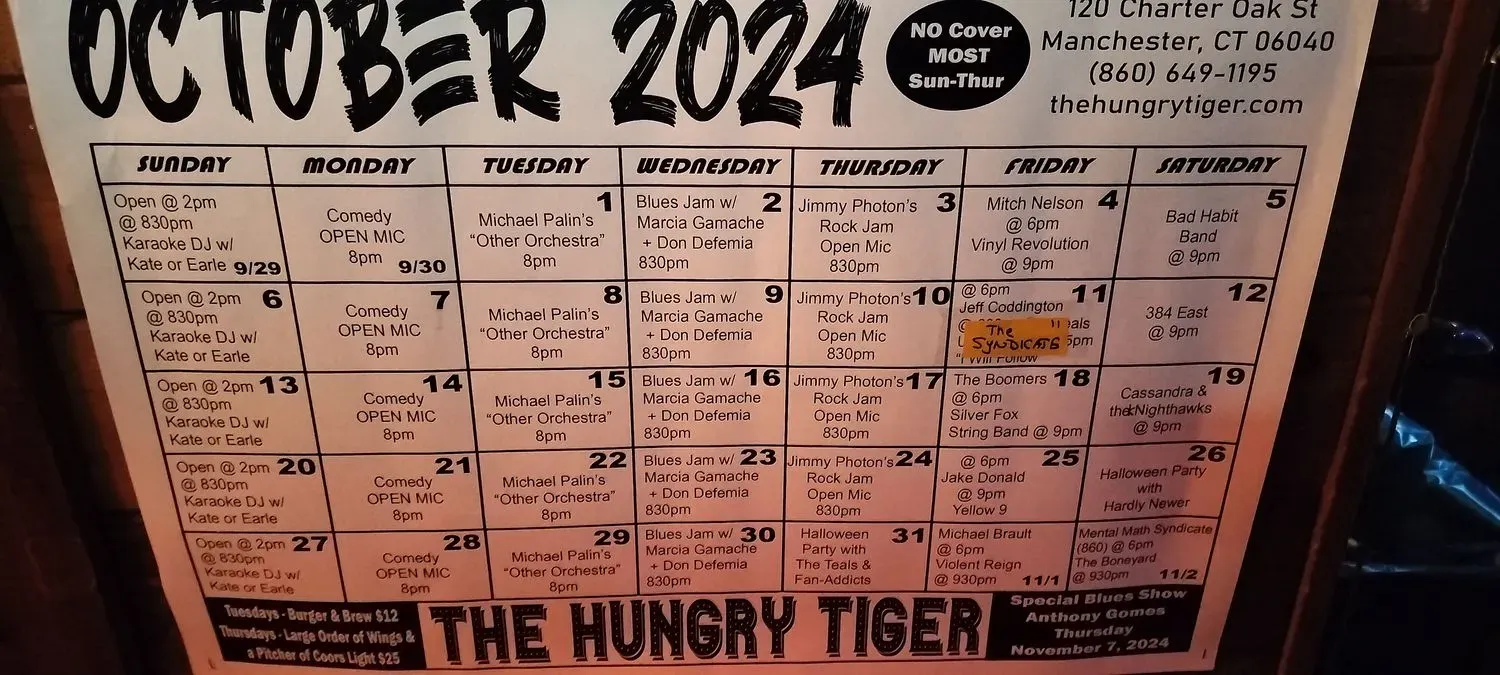 OCTOBER 2024
NO Cover
MOST
Sun-Thur
120 Charter Oak St
Manchester, CT 06040
(860) 649-1195
thehungrytiger.com
SUNDAY MONDAY TUESDAY WEDNESDAY THURSDAY FRIDAY SATURDAY
Open @ 2pm
@ 830pm
Karaoke DJ w/
Kate or Earle 9/29
Comedy
OPEN MIC
8pm 9/30
1
Michael Palin's
"Other Orchestra"
8pm
Blues Jam w/ 2
Marcia Gamache
+ Don Defemia
830pm
Jimmy Photon's 3
Rock Jam
Open Mic
830pm
Mitch Nelson 4
@ 6pm
Vinyl Revolution
@ 9pm
5
Bad Habit
Band
@ 9pm
Open @ 2pm 6
@ 830pm
Karaoke DJ w/
Kate or Earle
7
Comedy
OPEN MIC
8pm
8
Michael Palin's
"Other Orchestra"
8pm
Blues Jam w/ 9
Marcia Gamache
+ Don Defemia
830pm
Jimmy Photon's 10
Rock Jam
Open Mic
830pm
@ 6pm 11
Jeff Coddington
The
SYNDICATE
"I Will Follow
12
384 East
@ 9pm
Open @ 2pm 13
@ 830pm
Karaoke DJ w/
Kate or Earle
14
Comedy
OPEN MIC
8pm
15
Michael Palin's
"Other Orchestra"
8pm
Blues Jam w/ 16
Marcia Gamache
+ Don Defemia
830pm
Jimmy Photon's 17
Rock Jam
Open Mic
830pm
The Boomers 18
@ 6pm
Silver Fox
String Band @ 9pm
19
Cassandra &
the Nighthawks
@ 9pm
Open @ 2pm 20
@ 830pm
Karaoke DJ w/
Kate or Earle
21
Comedy
OPEN MIC
8pm
22
Michael Palin's
"Other Orchestra"
8pm
Blues Jam w/ 23
Marcia Gamache
+ Don Defemia
830pm
Jimmy Photon's 24
Rock Jam
Open Mic
830pm
@ 6pm 25
Jake Donald
@ 9pm
Yellow 9
26
Halloween Party
with
Hardly Newer
Open @ 2pm 27
@ 830pm
Karaoke DJ w/
Kate or Earle
28
Comedy
OPEN MIC
8pm
29
Michael Palin's
"Other Orchestra"
8pm
Blues Jam w/ 30
Marcia Gamache
+ Don Defemia
830pm
Halloween 31
Party with
The Teals &
Fan-Addicts
Michael Brault
@ 6pm
Violent Reign
@ 930pm 11/1
Mental Math Syndicate
(860) @ 6pm
The Boneyard
@ 930pm 11/2
Tuesdays - Burger & Brew $12
Thursdays - Large Order of Wings &
a Pitcher of Coors Light $25
THE HUNGRY TIGER
Special Blues Show
Anthony Gomes
Thursday
November 7, 2024